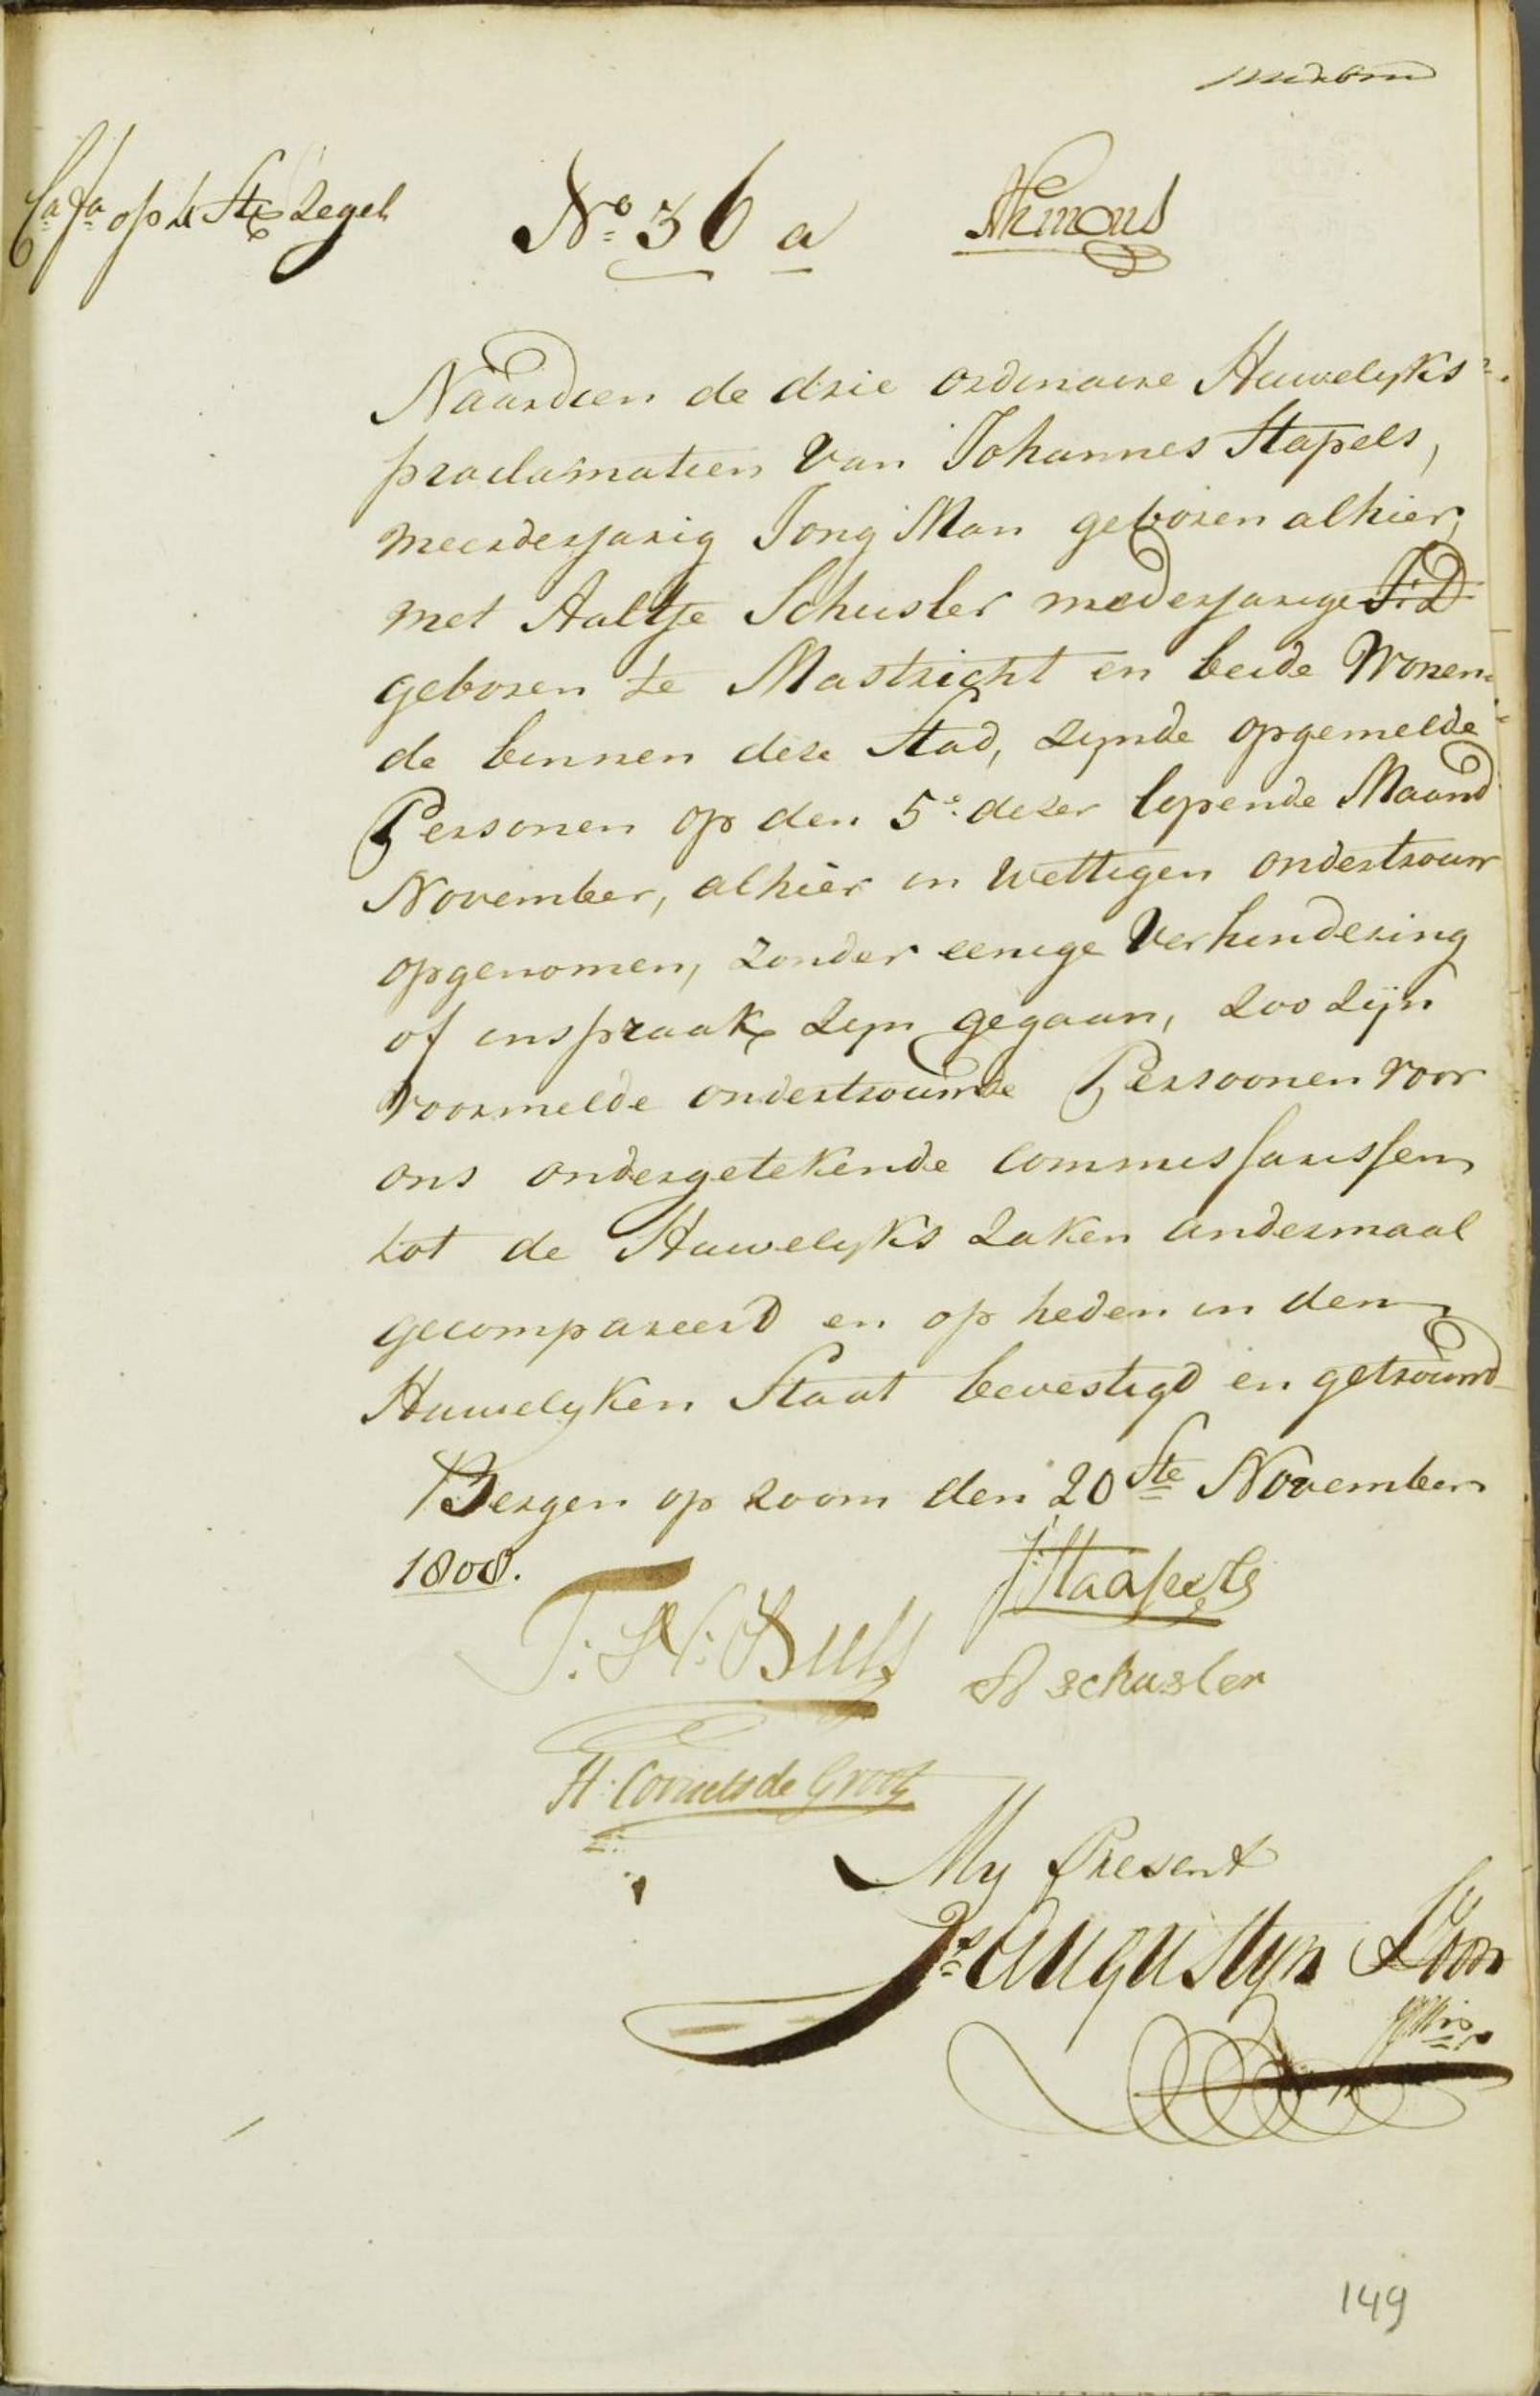 op 4 Sts Zegel
No. 36 a
Naardien de drie ordinaire Huwelyks
proclamatien van Johannes Stapels,
meerderjarig Jong Man geboren alhier,
met Aaltje Schusler mederjarige J: D
geboren te Mastricht en beide Wonen-
de binnen dese Stad, zynde opgemelde
Personen op den 5e. deser lopende Maand
November, alhier in Wettigen ondertrouw
opgenomen, zonder eenige Verhindering
of inspraak zyn gegaan, zoo zijn
voormelde ondertrouwde Persoonen voor
ons ondergetekende Commissarissen
tot de Huwelyks zaken andermaal
gecompareerd en op heden in den
Huwelyken Staat bevestigd en getrouwd
Bergen op Zoom den 20ste November
1808.
J: Staapels
A schusler
H: Cornelis de Grootz
My Present
Js. Augustyn Loon
149